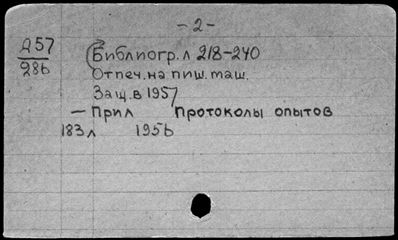 - 2 -
Д57
286
Библиогр. л 218-240
Отпеч. на пиш. маш.
Защ. в 1957
- Прил Протоколы опытов
183 л 1956